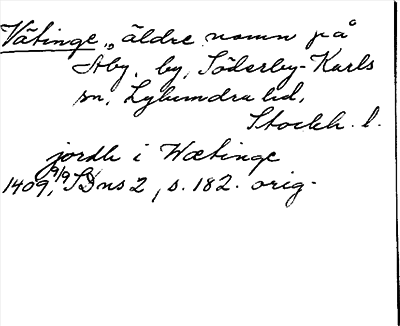 Vätinge, äldre namn på
Åby, by, Söderby-Karls
sn, Lyhundra hd,
Stockh. l.
jordh i Wætinge
1409 9/9, SDns 2, s. 182. orig.